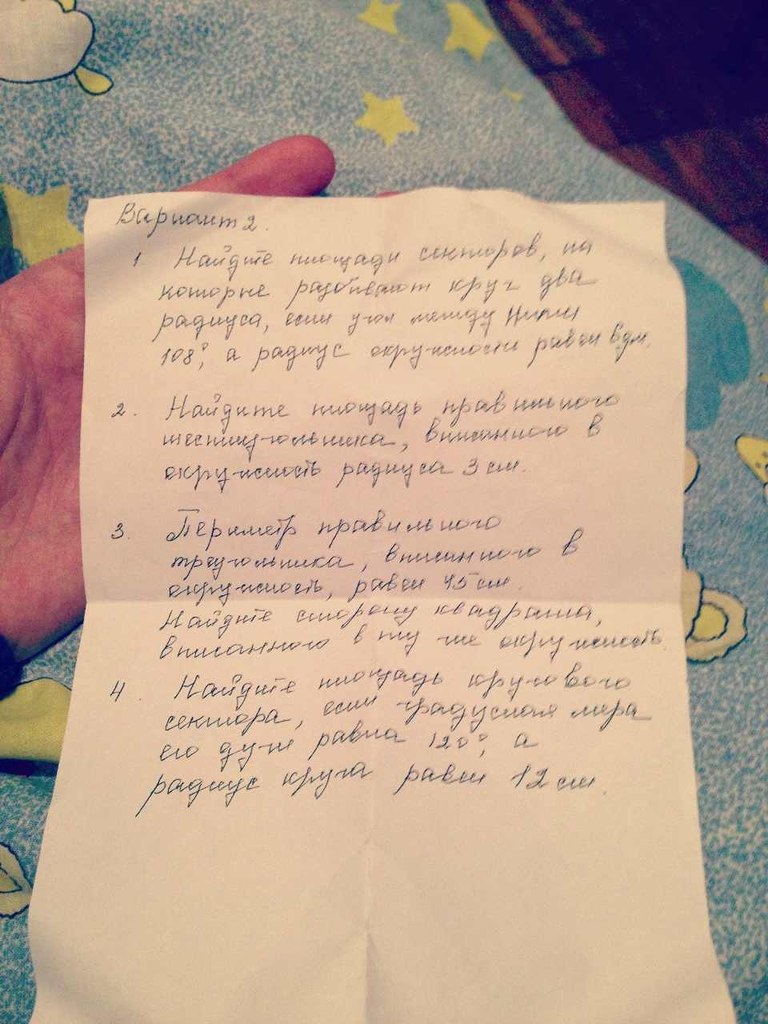 Вариант 2.
1 Найдите площади секторов, на
которые разбивают круг два
радиуса, если угол между ними
108°, а радиус окружности равен 6 дм.
2. Найдите площадь правильного
шестиугольника, вписанного в
окружность радиуса 3 см.
3. Периметр правильного
треугольника, вписанного в
окружность, равен 45 см.
Найдите сторону квадрата,
вписанного в ту же окружность.
4 Найдите площадь кругового
сектора, если градусная мера
его дуги равна 120°, а
радиус круга равен 12 см.